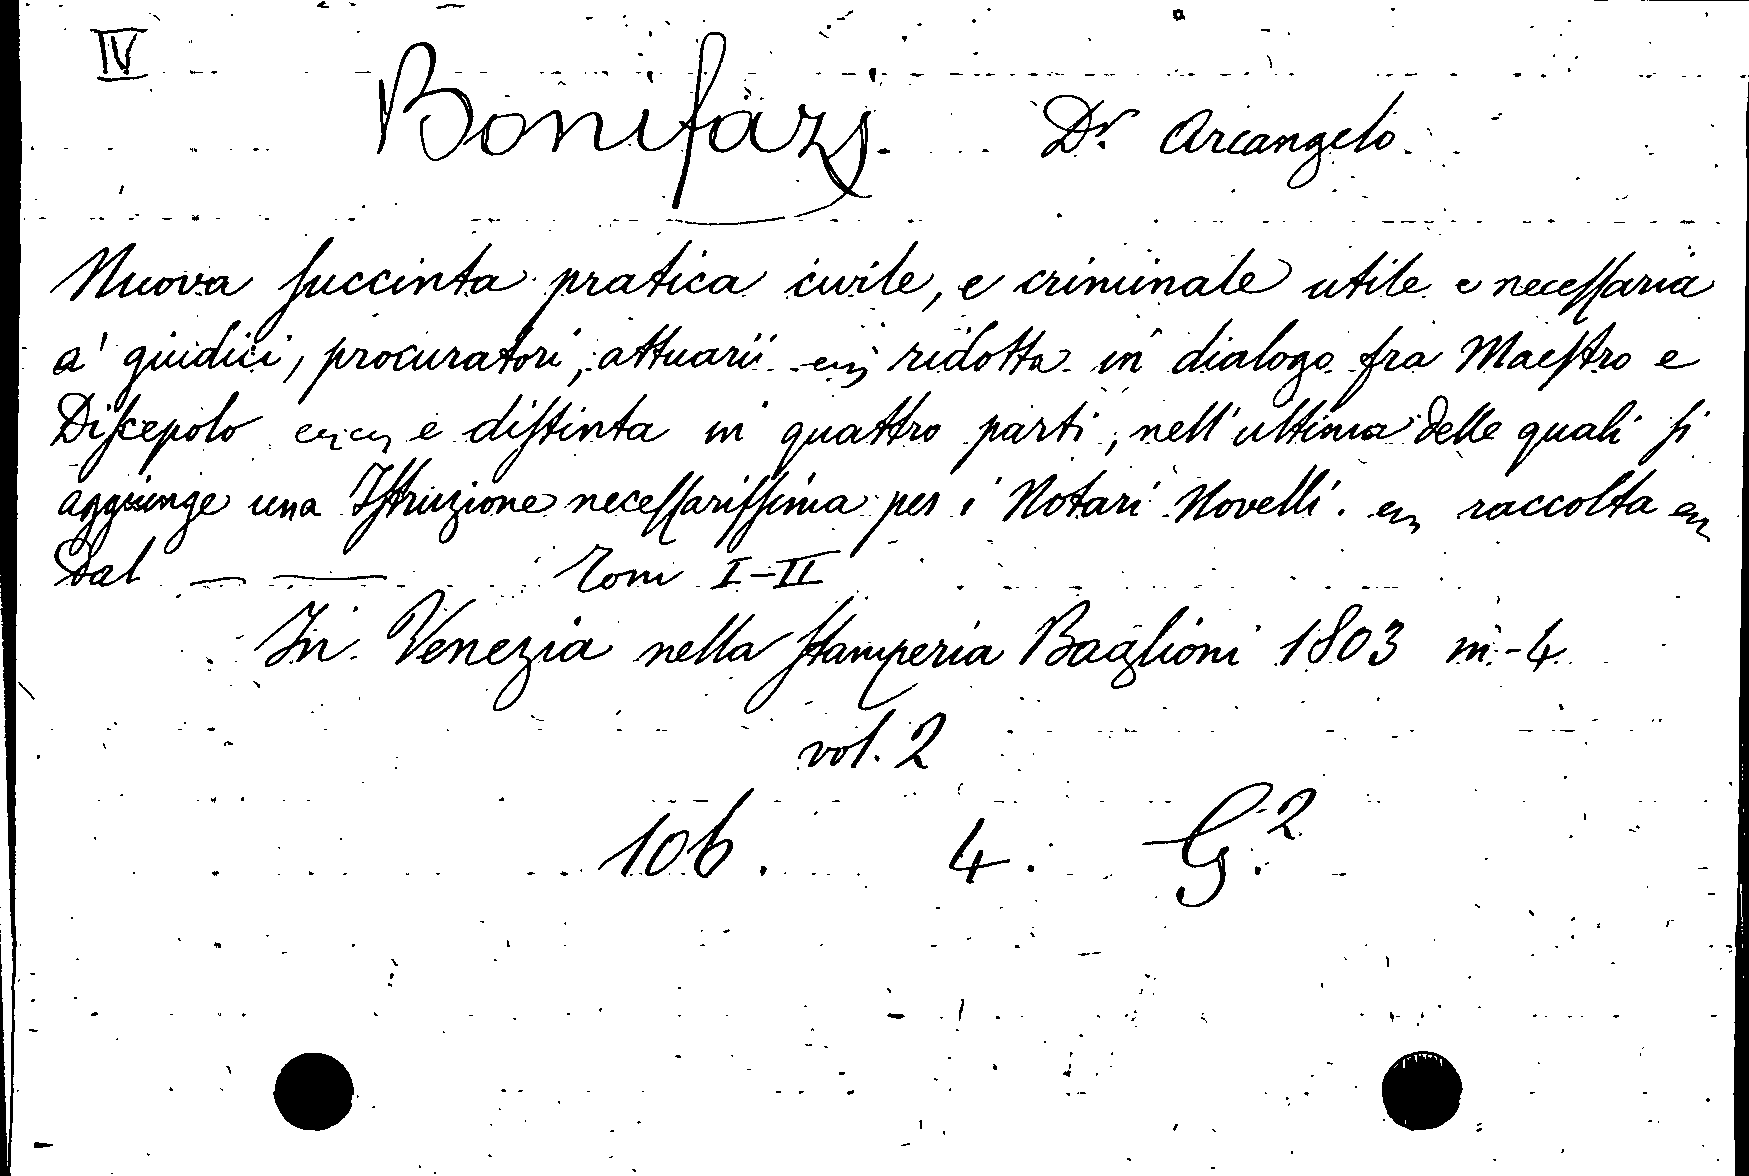 IV
Bonifazj. Dr. Arcangelo.
Nuova ſuccinta pratica civile, e criminale utile e neceſſaria
a' giudici, procuratori, attuarii ridotta in dialogo fra Maeſtro e
Diſcepolo e diſtinta in quattro parti, nell'ultima delle quali ſi
aggiunge una Iſtruzione neceſſariſſima per i Notari Novelli. raccolta
dal — — Tomi I-II
In Venezia nella ſtamperia Baglioni 1803 in-4.
vol. 2
106. 4. G.2